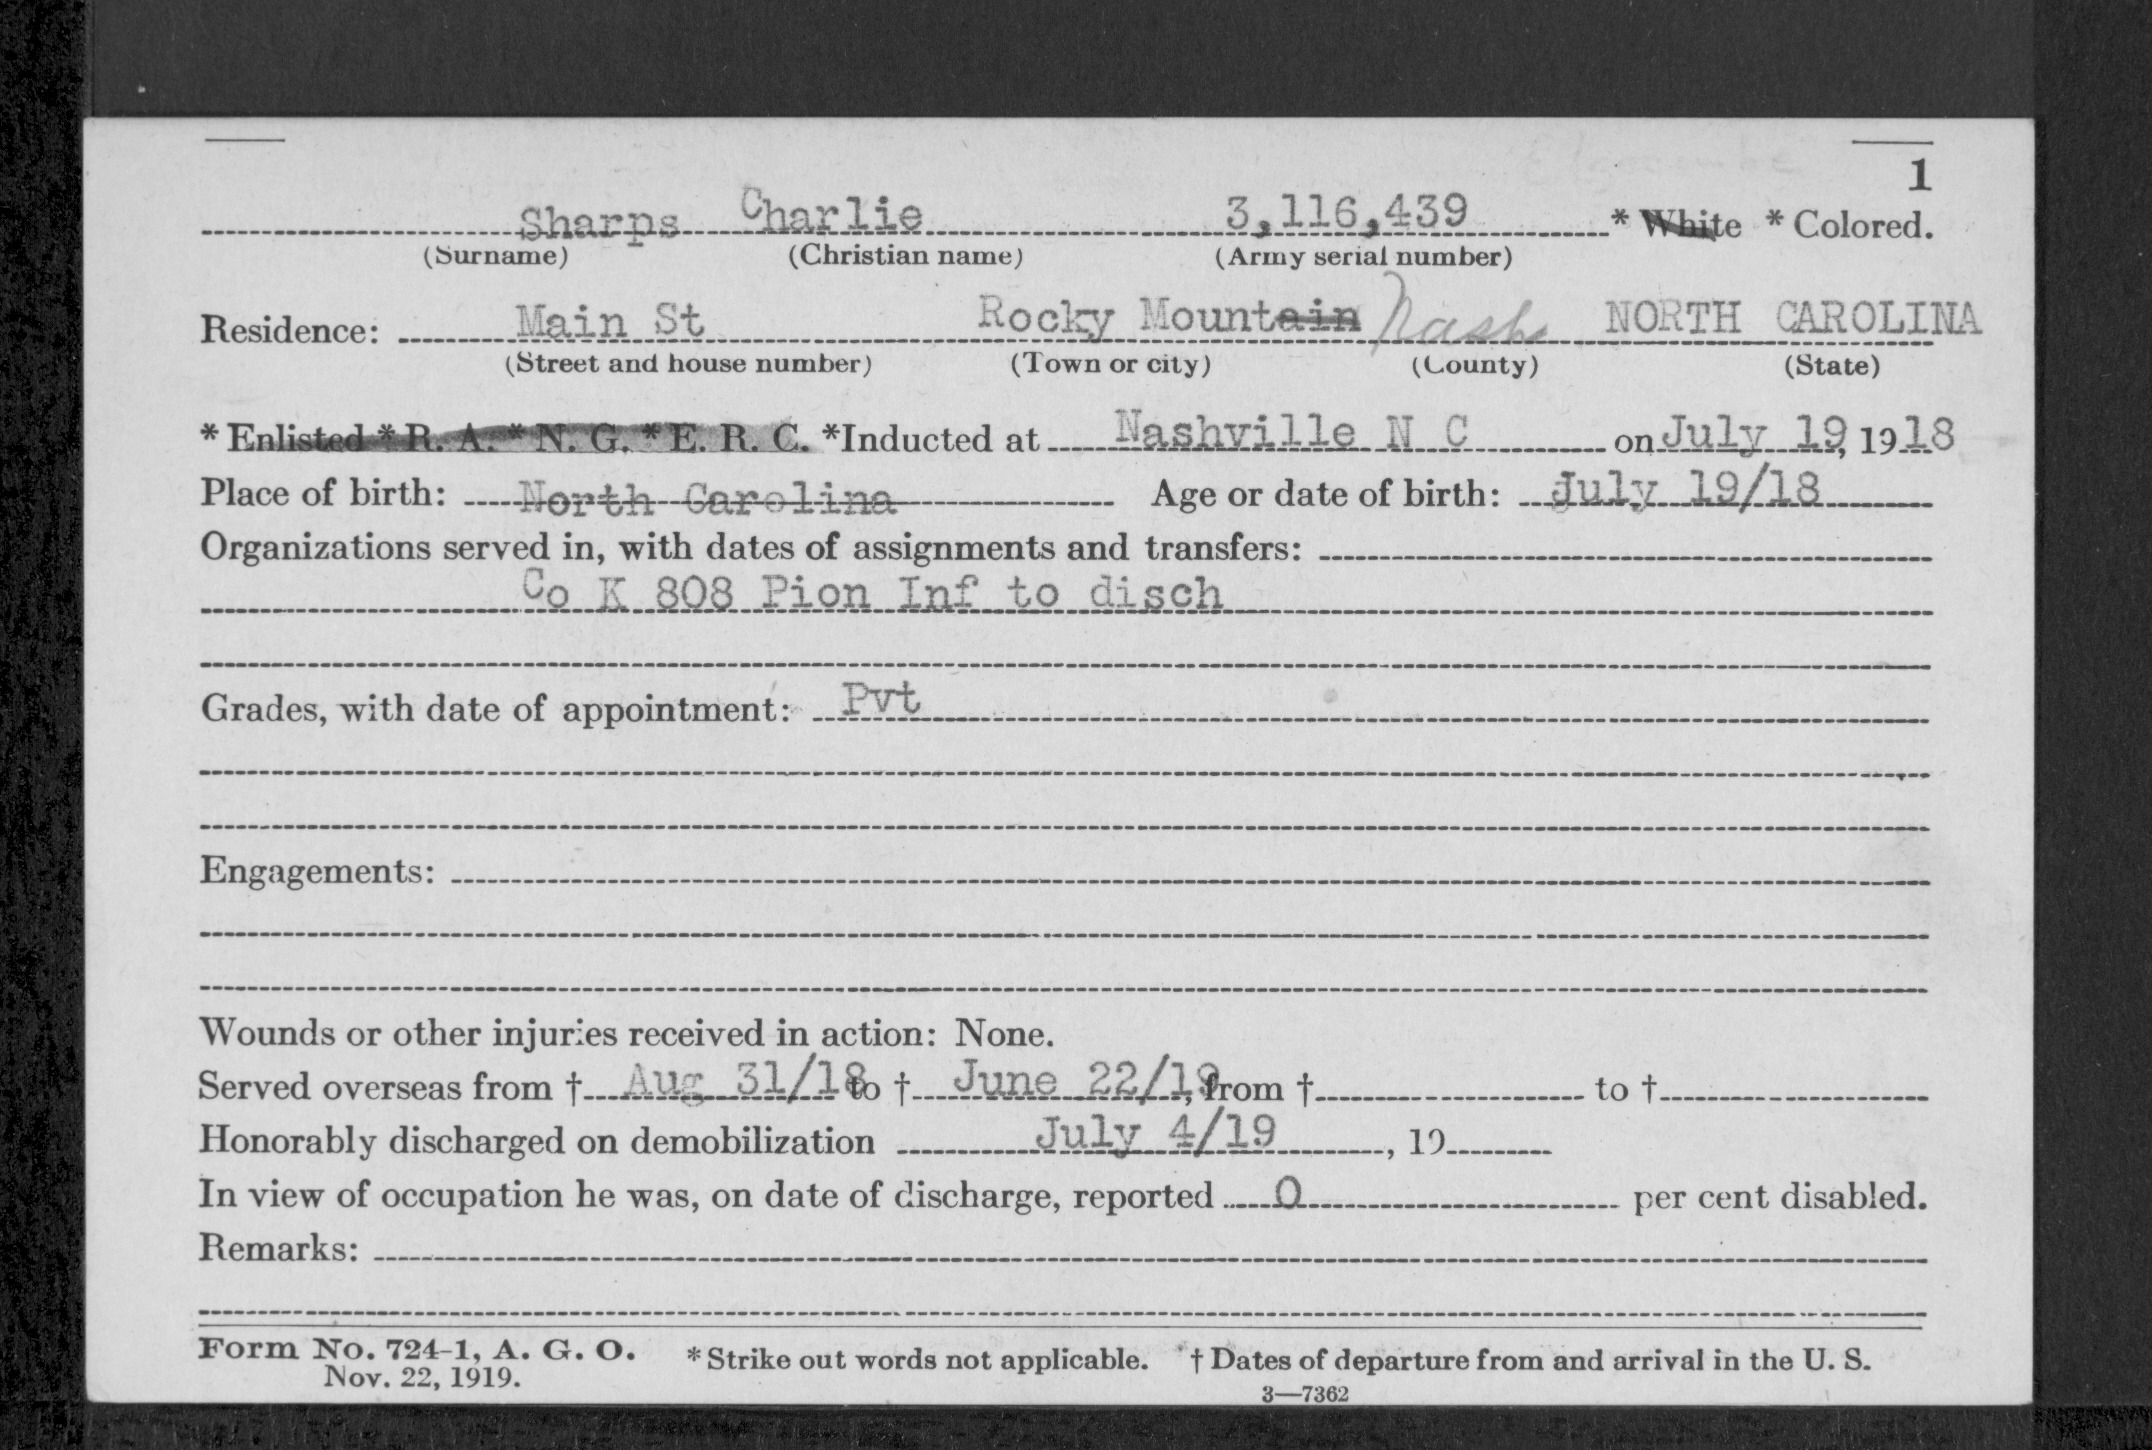 1
Sharps Charlie 3,116,439 * White * Colored.
(Surname) (Christian name) (Army serial number)
Residence: Main St Rocky Mountain Nash NORTH CAROLINA
(Street and house number) (Town or city) (County) (State)
* Enlisted * R. A. * N. G. * E. R. C. *Inducted at Nashville N C on July 19, 1918
Place of birth: North Carolina Age or date of birth: July 19/18
Organizations served in, with dates of assignments and transfers:
Co K 808 Pion Inf to disch
Grades, with date of appointment: Pvt
Engagements:
Wounds or other injuries received in action: None.
Served overseas from † Aug 31/18 to † June 22/19, from † to †
Honorably discharged on demobilization July 4/19, 19
In view of occupation he was, on date of discharge, reported 0 per cent disabled.
Remarks:
Form No. 724-1, A. G. O. * Strike out words not applicable. † Dates of departure from and arrival in the U. S.
Nov. 22, 1919.
3—7362